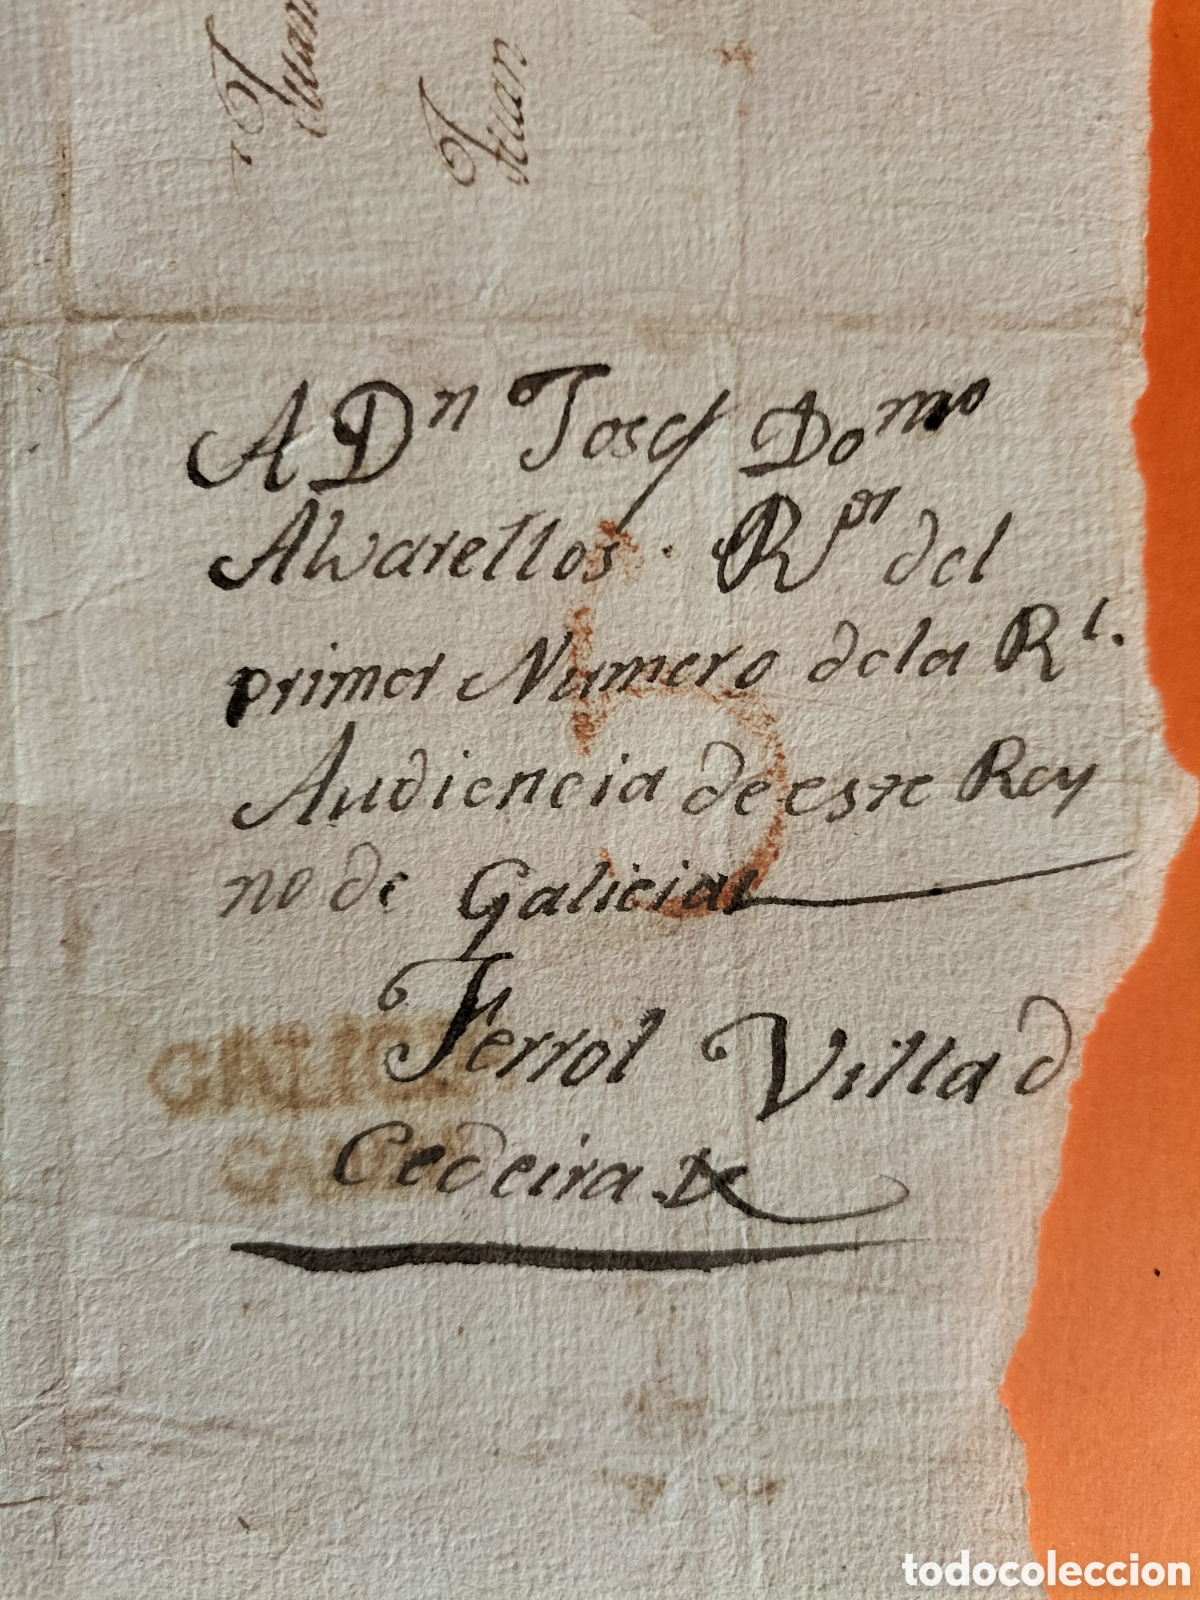 Juan
Juan
A Dn Josef Domo
Alvarellos. Rpr del
primer Numero dela Rl.
Audiencia de este Rey
no de Galicia
5
Ferrol Villa d
Cedeira
GALICIA
todocoleccion